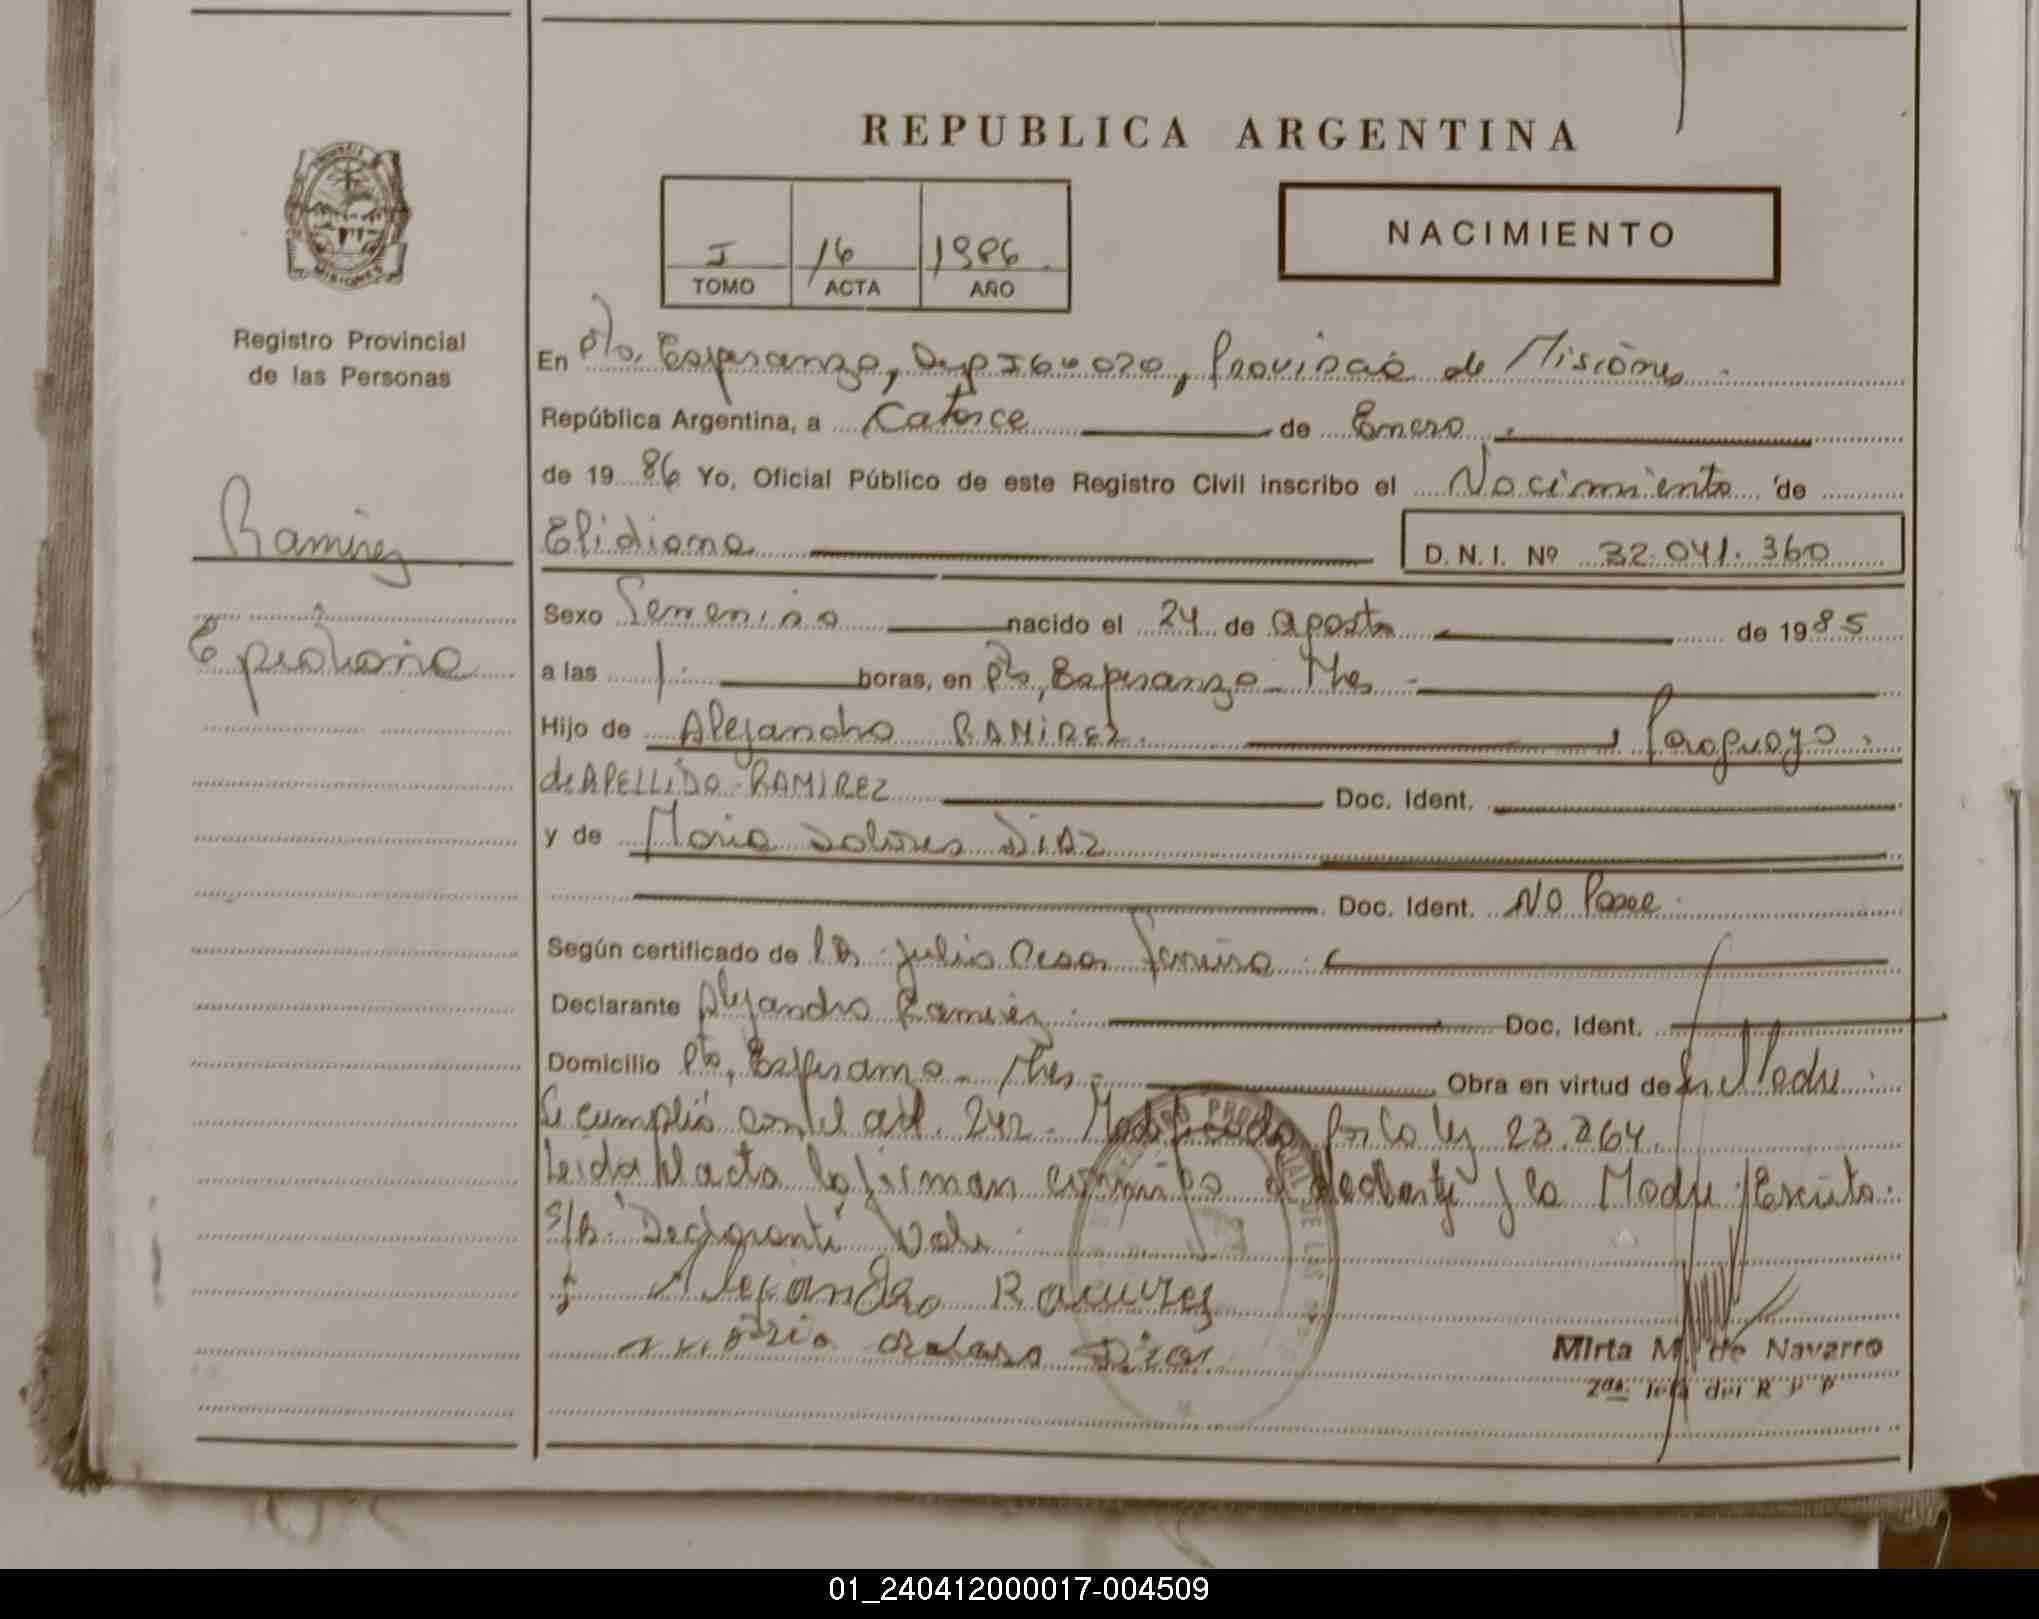 REPUBLICA ARGENTINA
I 16 1986
TOMO ACTA AÑO
NACIMIENTO
MISIONES
Registro Provincial
de las Personas
Ramirez
En Pto. Esperanza, Dep Iguazu, Provincia de Misiones
República Argentina, a Catorce de Enero
de 19 86 Yo, Oficial Público de este Registro Civil inscribo el Nacimiento de
Elidiana D. N. I. Nº 32.041.360
Sexo Femenino nacido el 24 de agosto de 19 85
a las 1 horas, en Pto, Esperanza - Mnes
Hijo de Alejandro RAMIREZ Paraguayo
de APELLIDO RAMIREZ Doc. Ident.
y de Maria Dolores DIAZ
Doc. Ident. No Posee
Según certificado de Julio Cesar
Declarante Alejandro Ramirez Doc. Ident.
Domicilio Pto, Esperanza - Mnes Obra en virtud de Madre
Se cumplió con el art. 242 - Modificado por la ley 23.264.
Leida el acta la firman conmigo el declarante y la Madre
S/R "Declarante" Vale
Alejandro Ramirez
Diaz
Mirta M. de Navarro
2da. Jefa del R P P
01_240412000017-004509